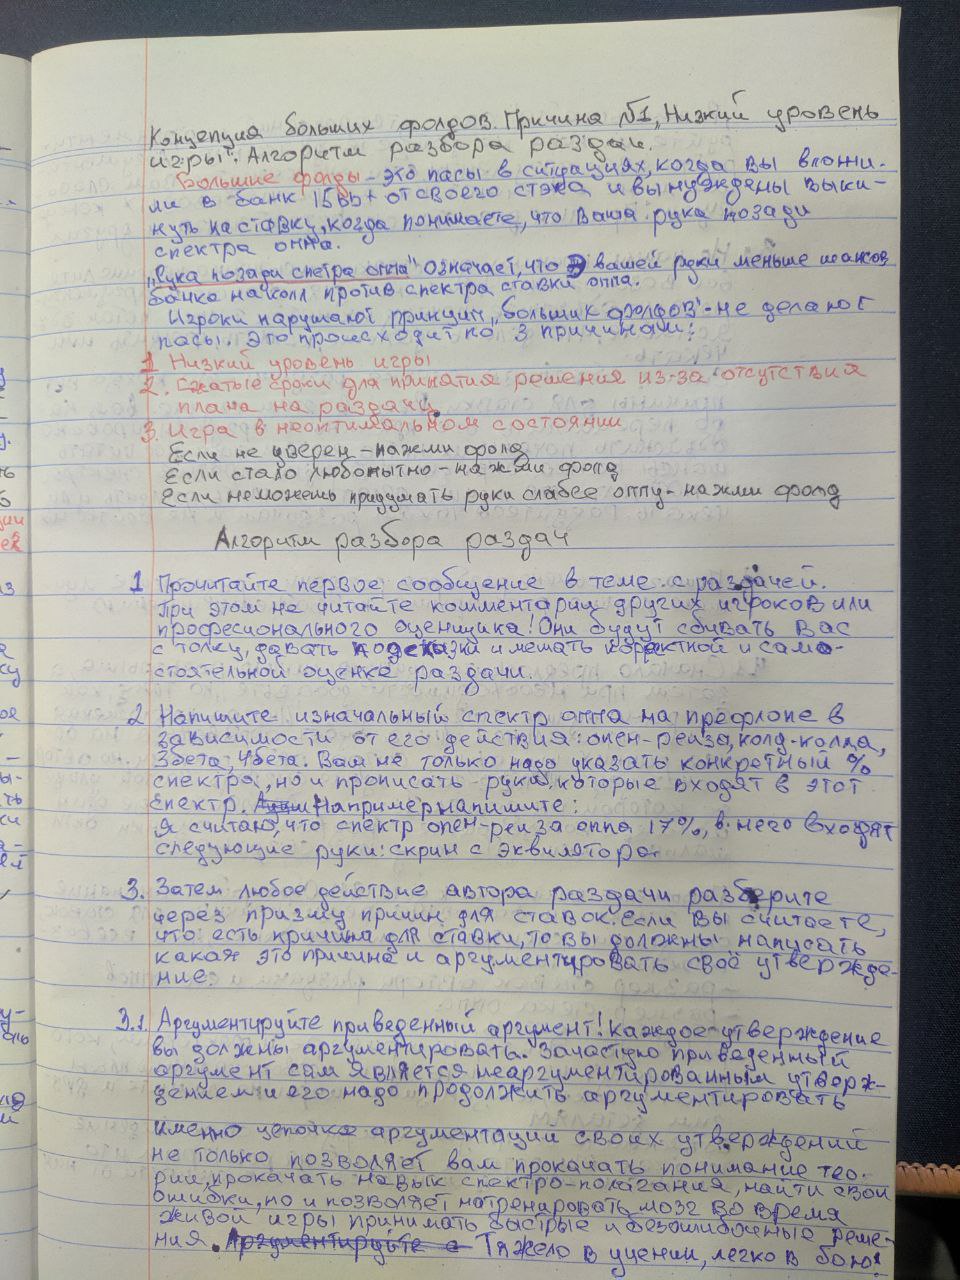 Концепция больших фолдов. Причина №1, Низкий уровень
игры". Алгоритм разбора раздач.
Большие фолды - это пасы в ситуациях, когда вы вложи-
ли в банк 15bb+ от своего стэка и вынуждены выки-
нуть на ставку, когда понимаете, что Ваша рука позади
спектра оппа.
"Рука позади спетра оппа" означает, что вашей руки меньше шансов
банка на колл против спектра ставки оппа.
Игроки нарушают принцип "больших фолдов" - не делают
пасы. Это происходит по 3 причинам:
1 Низкий уровень игры
2. Сжатые сроки для принятия решения из-за отсутствия
плана на раздачу.
3. Игра в неоптимальном состоянии
Если не уверен - нажми фолд
Если стало любопытно - нажми фолд
Если неможешь придумать руки слабее оппу - нажми фолд
Алгоритм разбора раздач
1 Прочитайте первое сообщение в теме с раздачей.
При этом не читайте комментарии других игроков или
професионального оценщика! Они будут сбивать Вас
с толку, давать подсказки и мешать корректной и само-
стоятельной оценке раздачи.
2 Напишите изначальный спектр оппа на префлопе в
зависимости от его действия: опен-рейза, колд-колла,
3бета, 4бета. Вам не только надо указать конкретный %
спектра, но и прописать руки, которые входят в этот
спектр. Например напишите:
Я считаю, что спектр опен-рейза оппа 17%, в него входят
следующие руки: скрин с эквилятора.
3. Затем любое действие автора раздачи разберите
через призму причин для ставок. Если Вы считаете,
что есть причина для ставки, то вы должны написать
какая это причина и аргументировать своё утвержде-
ние.
3.1 Аргументируйте приведенный аргумент! Каждое утверждение
вы должны аргументировать. Зачастую приведенный
аргумент сам является неаргументированным утверж-
дением и его надо продолжить аргументировать
именно цепочка аргументации своих утверждений
не только позволяет вам прокачать понимание тео-
рии, прокачать навык спектро-полагания, найти свои
ошибки, но и позволяет натренировать мозг во время
живой игры принимать быстрые и безошибочные реше-
ния. Тяжело в учении, легко в бою!